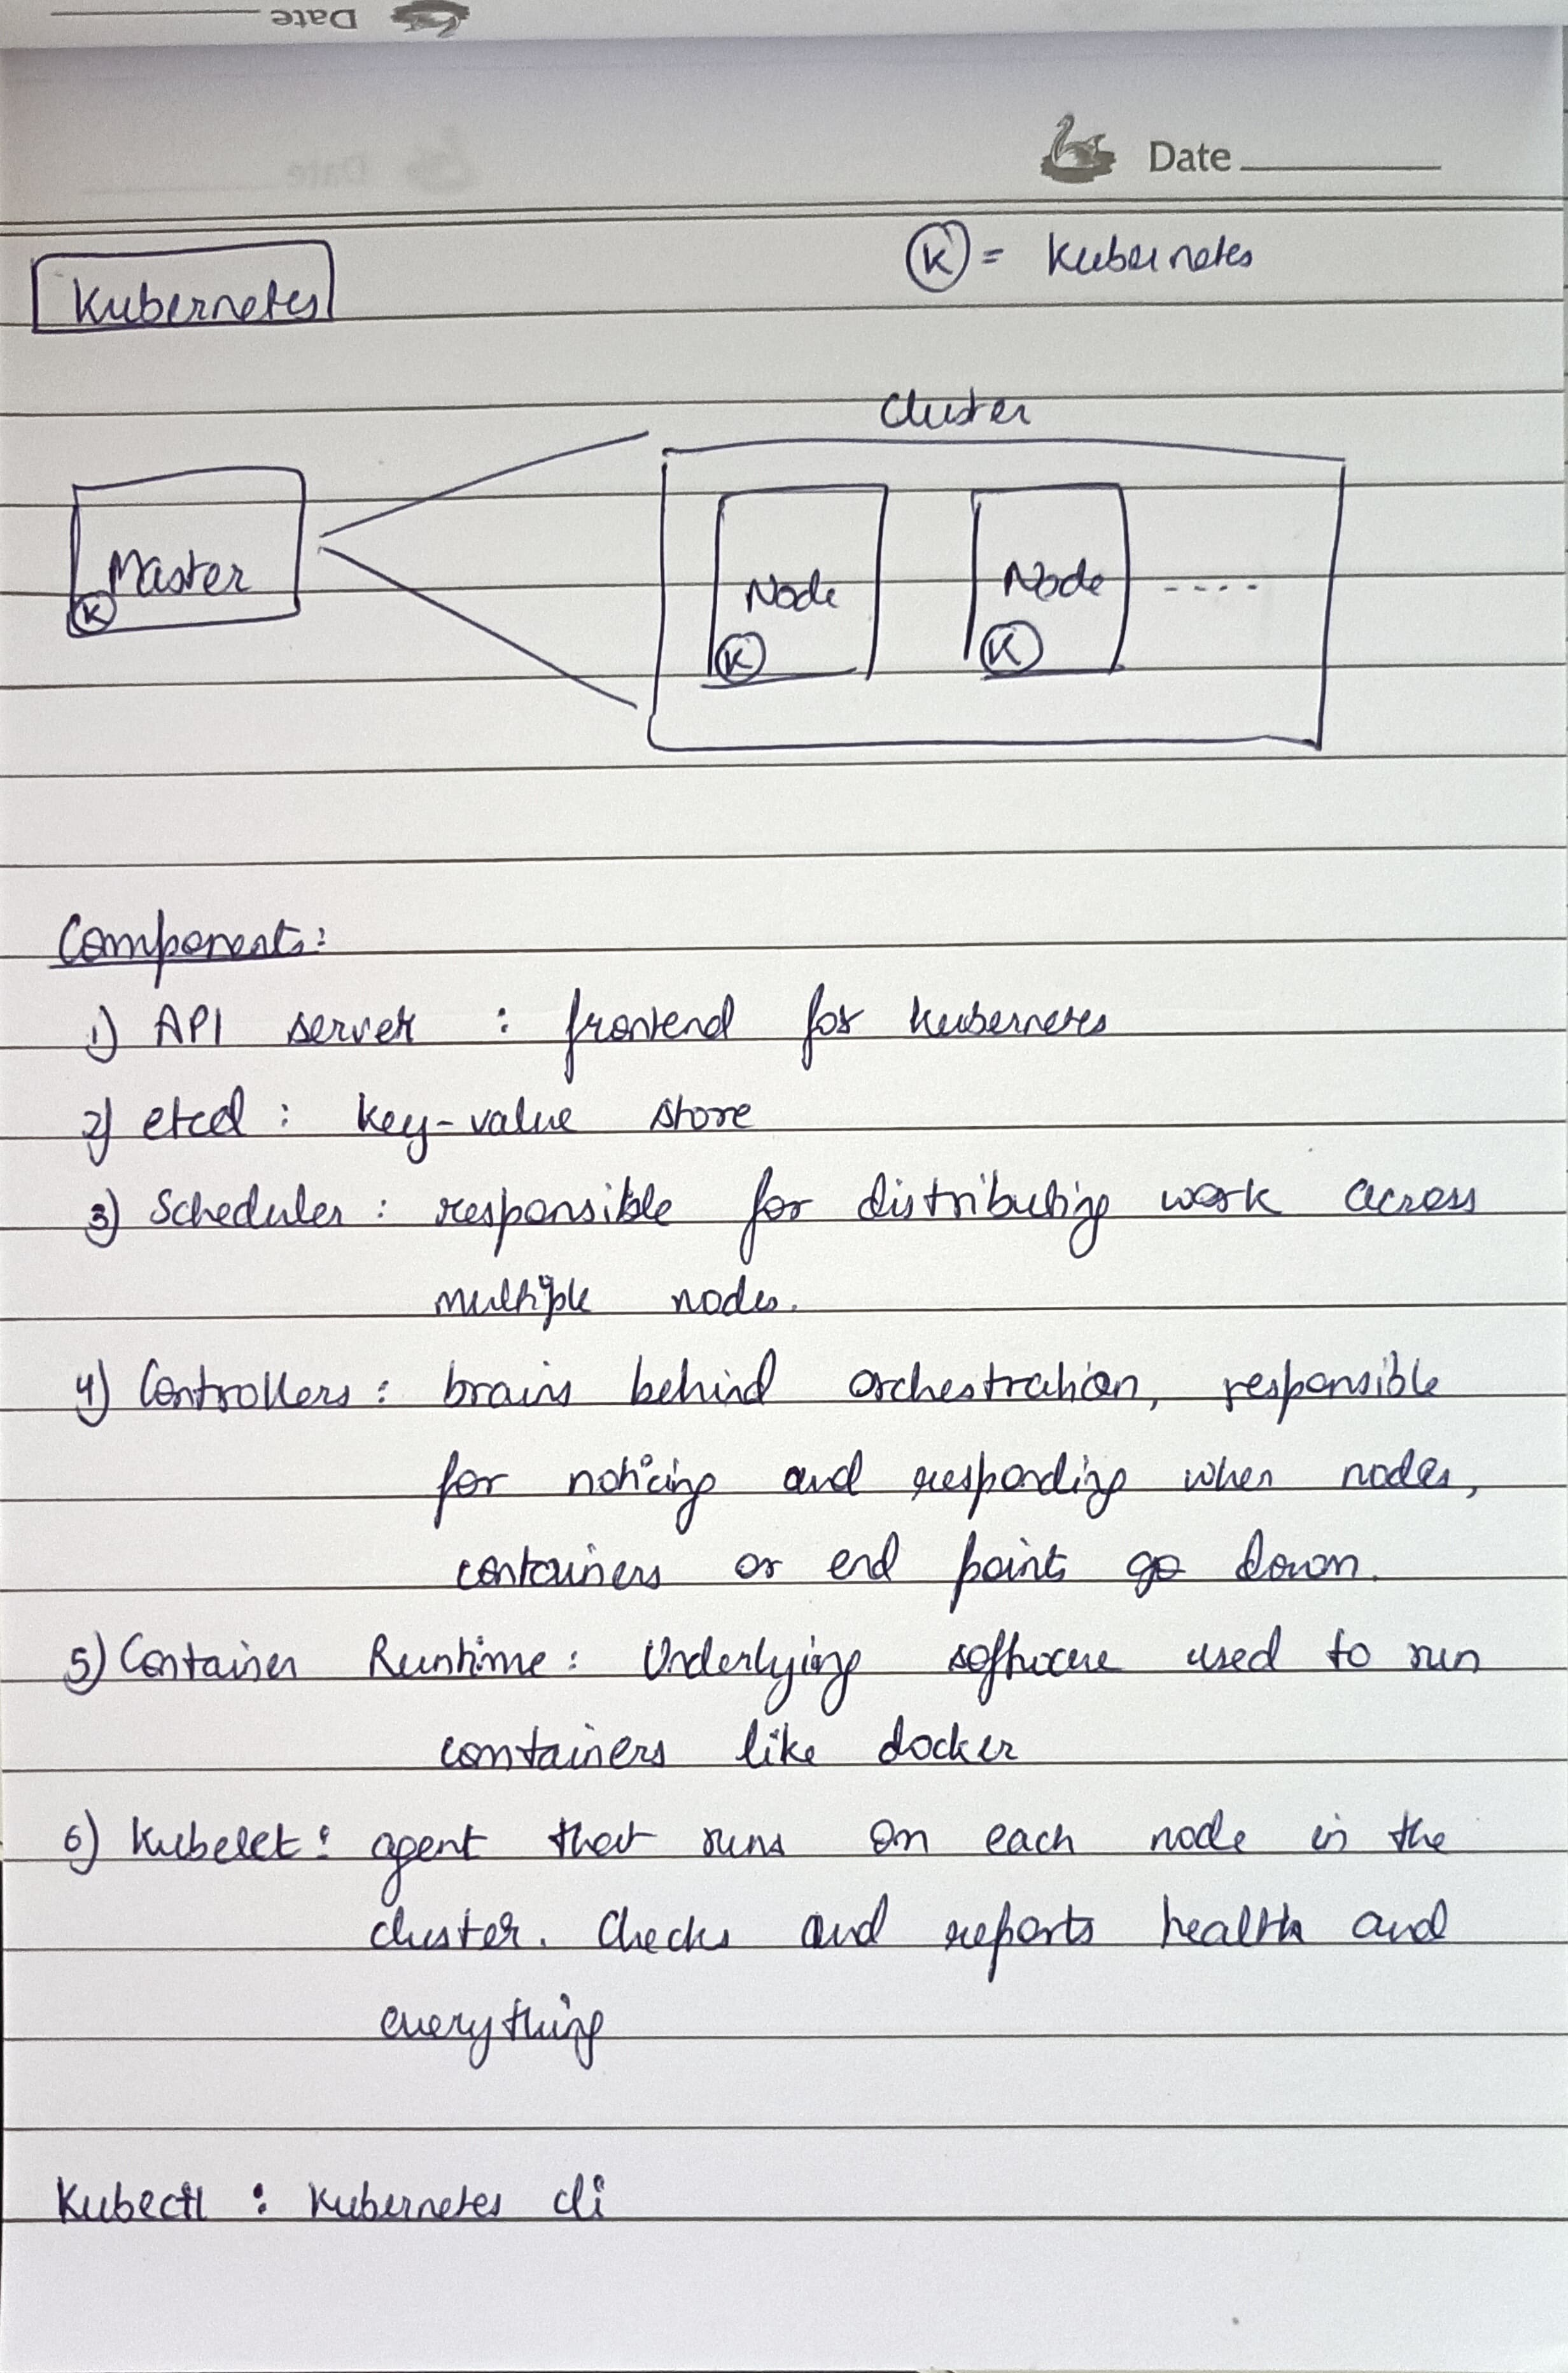 Date
Date
Kubernetes
K = Kubernetes
Cluster
Master
K
Node
K
Node
K
----
Components:
1) API server : frontend for kubernetes
2) etcd : key-value store
3) Scheduler : responsible for distributing work across
multiple nodes.
4) Controllers : brains behind orchestration, responsible
for noticing and responding when nodes,
containers or end points go down.
5) Container Runtime : Underlying software used to run
containers like docker
6) Kubelet : agent that runs on each node in the
cluster. Checks and reports health and
everything
Kubectl : Kubernetes cli